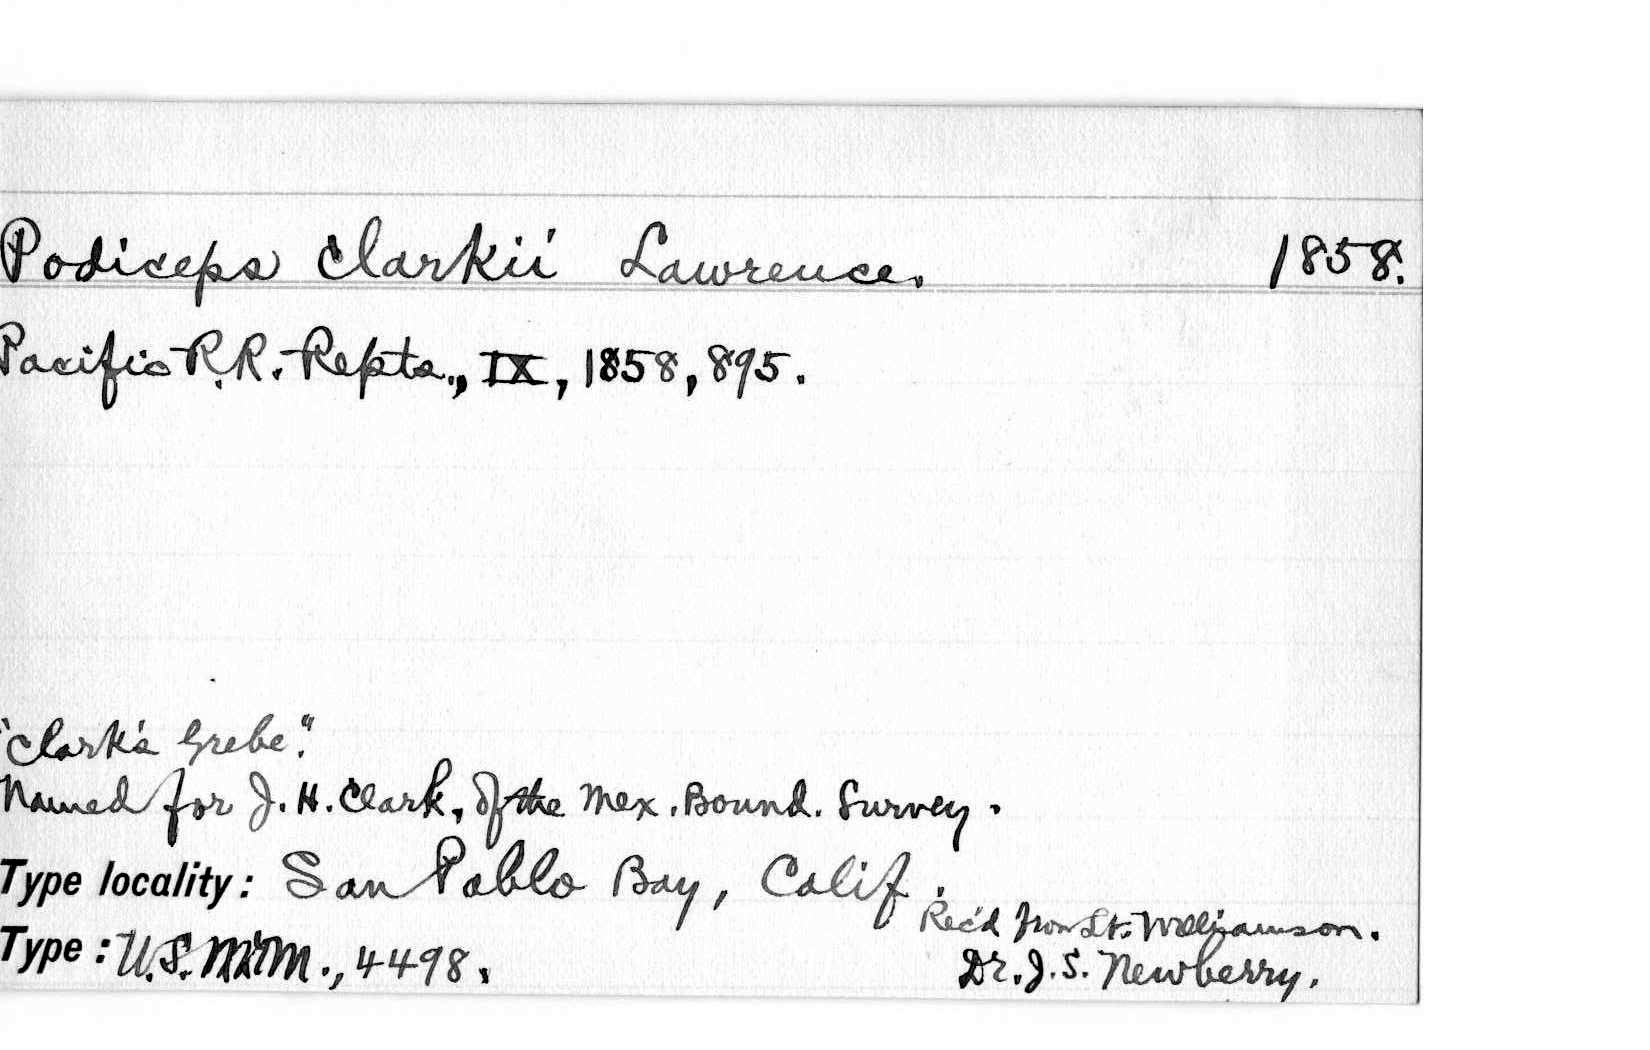 Podiceps clarkii Lawrence. 1858.
Pacific R.R. Repts., IX, 1858, 895.
"Clark's Grebe."
Named for J. H. Clark, of the Mex. Bound. Survey.
Type locality: San Pablo Bay, Calif.
Rec'd from Lt. Williamson.
Type: U.S. N. M., 4498.
Dr. J. S. Newberry.